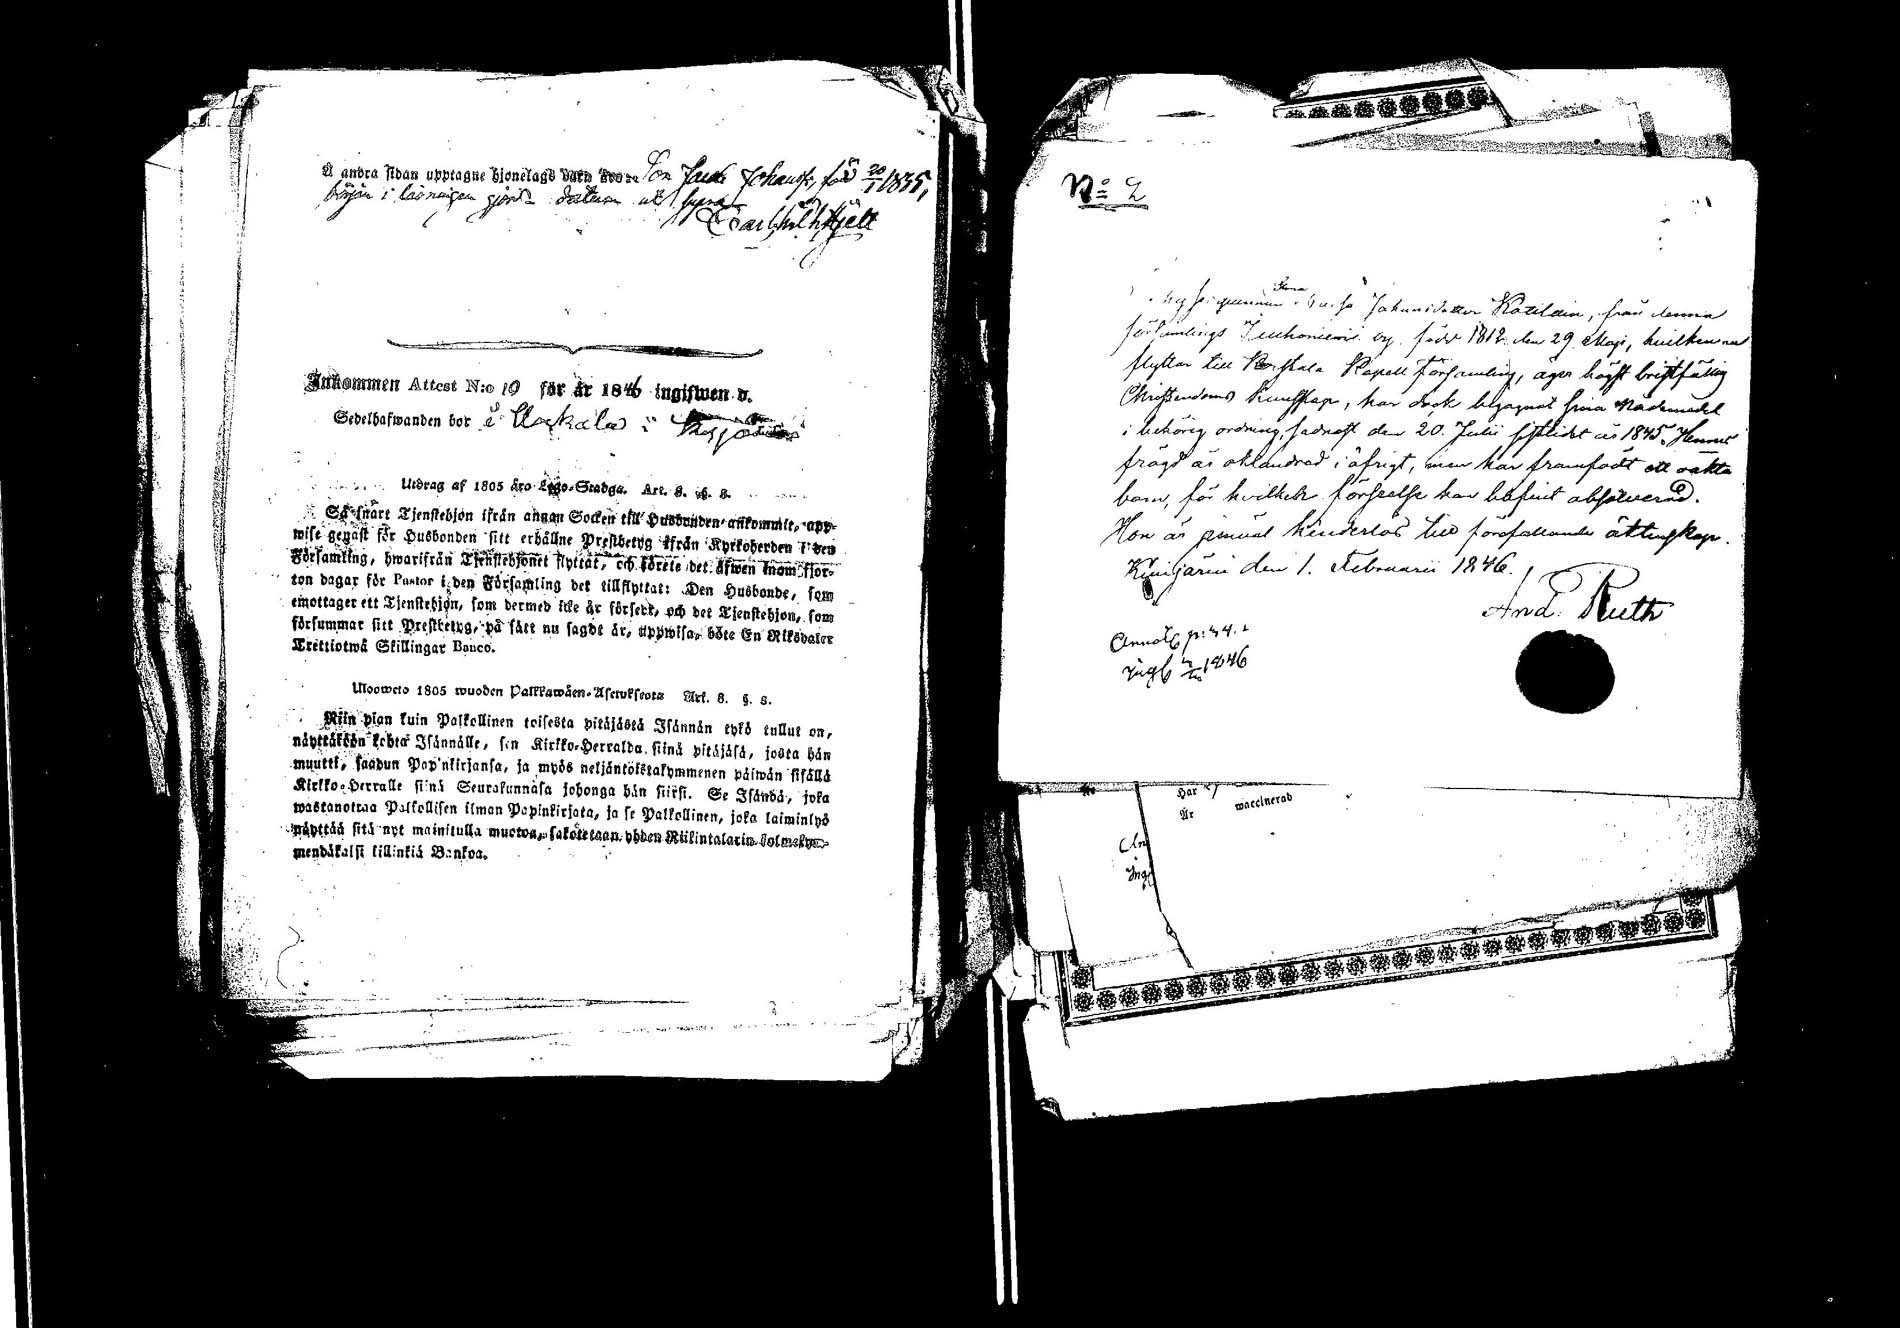 Å andra sidan upptagne hjonelags barn äro: Son Johansson, född 20/1 1835,
början i läsningen gjord. datum ut supra
Carl Wilh. Hjelt
Inkommen Attest N:o 10 för år 1846 ingifwen d.
Sedelhafwanden bor i
Utdrag af 1805 års Lego-Stadga. Art. 8. §. 8.
Så snart Tjenstehjon ifrån annan Socken till Husbonden ankommit, upp-
wise genast för Husbonden sitt erhållne Prestbetyg ifrån Kyrkoherden i den
Församling, hwarifrån Tjenstehjonet flyttat, och förete det äfwen inom fjor-
ton dagar för Pastor i den Församling det tillflyttat: Den Husbonde, som
emottager ett Tjenstehjon, som dermed icke är försedt, och det Tjenstehjon, som
försummar sitt Prestbetyg, på sätt nu sagdt är, uppwisa, böte En Riksdaler
Trettiotwå Skillingar Banco.
Ulosweto 1805 wuoden Palkkawäen-Asetuksesta Art. 8. §. 8.
Niin pian kuin Palkollinen toisesta pitäjästä Isännän tykö tullut on,
näyttäköön kohta Isännälle, sen Kirkko-Herralda siinä pitäjäsä, josta hän
muutti, saadun Papinkirjansa, ja myös neljäntoistakymmenen päiwän sisällä
Kirkko-Herralle siinä Seurakunnasa johonga hän siirsi. Se Isändä, joka
wastanottaa Palkollisen ilman Papinkirjata, ja se Palkollinen, joka laiminlyö
näyttää sitä nyt mainitulla muotoa, sakotetaan yhden Riikintalarin kolmekym-
mendäkaksi killinkiä Bankoa.
N:o 2
Stina
Johansdotter Kotilain, från denna
församlings by, född 1812 den 29 Maji, hvilken nu
flyttar till Kapell församling, äger högst bristfällig
Christendoms kunskap, har dock begagnat sina Nådemedel
i behörig ordning, sednast den 20. Julii sistlidet år 1845. Hennes
frägd är oklandrad i öfrigt, men har framfödt ett oäkta
barn, för hvilken förseelse hon blifvit absolverad.
Hon är jemväl hinderlös till förefallande äktenskap.
den 1. Februarii 1846.
And. Ruth
Annot. p: 44.
Ingl 1846
Har
År
waccinerad
An
Ingl